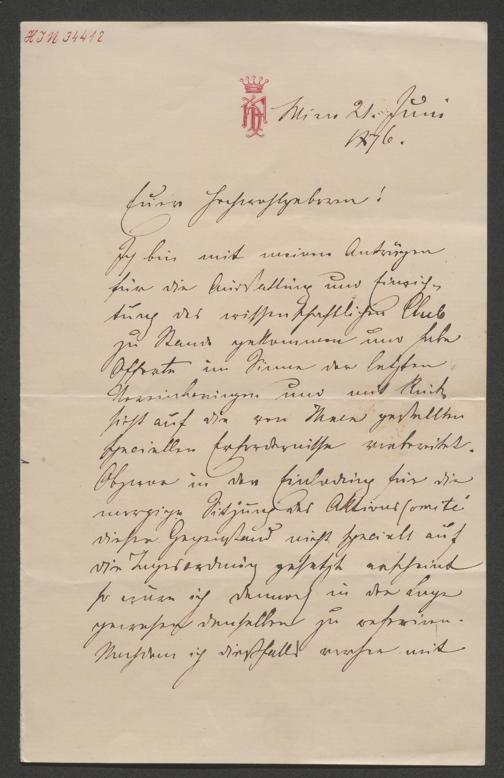 HIN 34412
Wien 21. Juni
1876.
Euer Hochwohlgeboren!
Ich bin mit meinen Anträgen
für die Ausstattung und Einrich-
tung des wissenschaftlichen Club
zu Stande gekommen und habe
Offerte im Sinne der letzten
Vereinbarungen und mit Rück-
sicht auf die von Ihnen gestellten
speciellen Erfordernisse vorbereitet.
Obzwar in der Einladung für die
morgige Sitzung des Aktions Comité
dieser Gegenstand nicht speciell auf
die Tagesordnung gesetzt erscheint
so wäre ich dennoch in der Lage
gewesen denselben zu referiren.
Nachdem ich dießfalls vorher mit